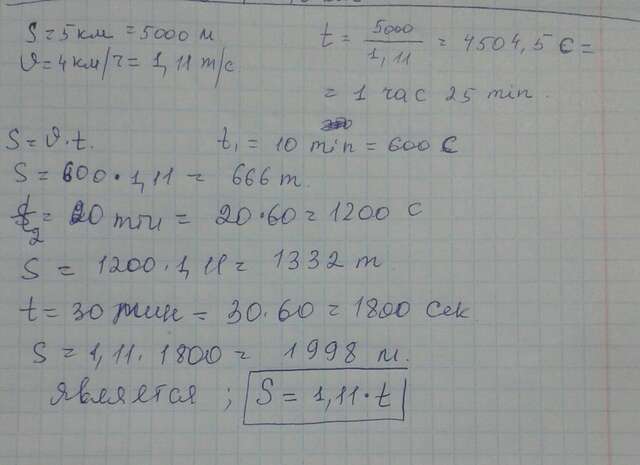 S = 5 км = 5000 м
ϑ = 4 км/ч = 1,11 m/c.
t = 5000 / 1,11 = 4504,5 c =
= 1 час 25 min.
S = ϑ · t.
t₁ = 10 min = 600 c
S = 600 · 1,11 = 666 m.
t₂ = 20 min = 20·60 = 1200 c
S = 1200 · 1,11 = 1332 m
t = 30 мин = 30·60 = 1800 сек
S = 1,11 · 1800 = 1998 м.
является ; S = 1,11 · t